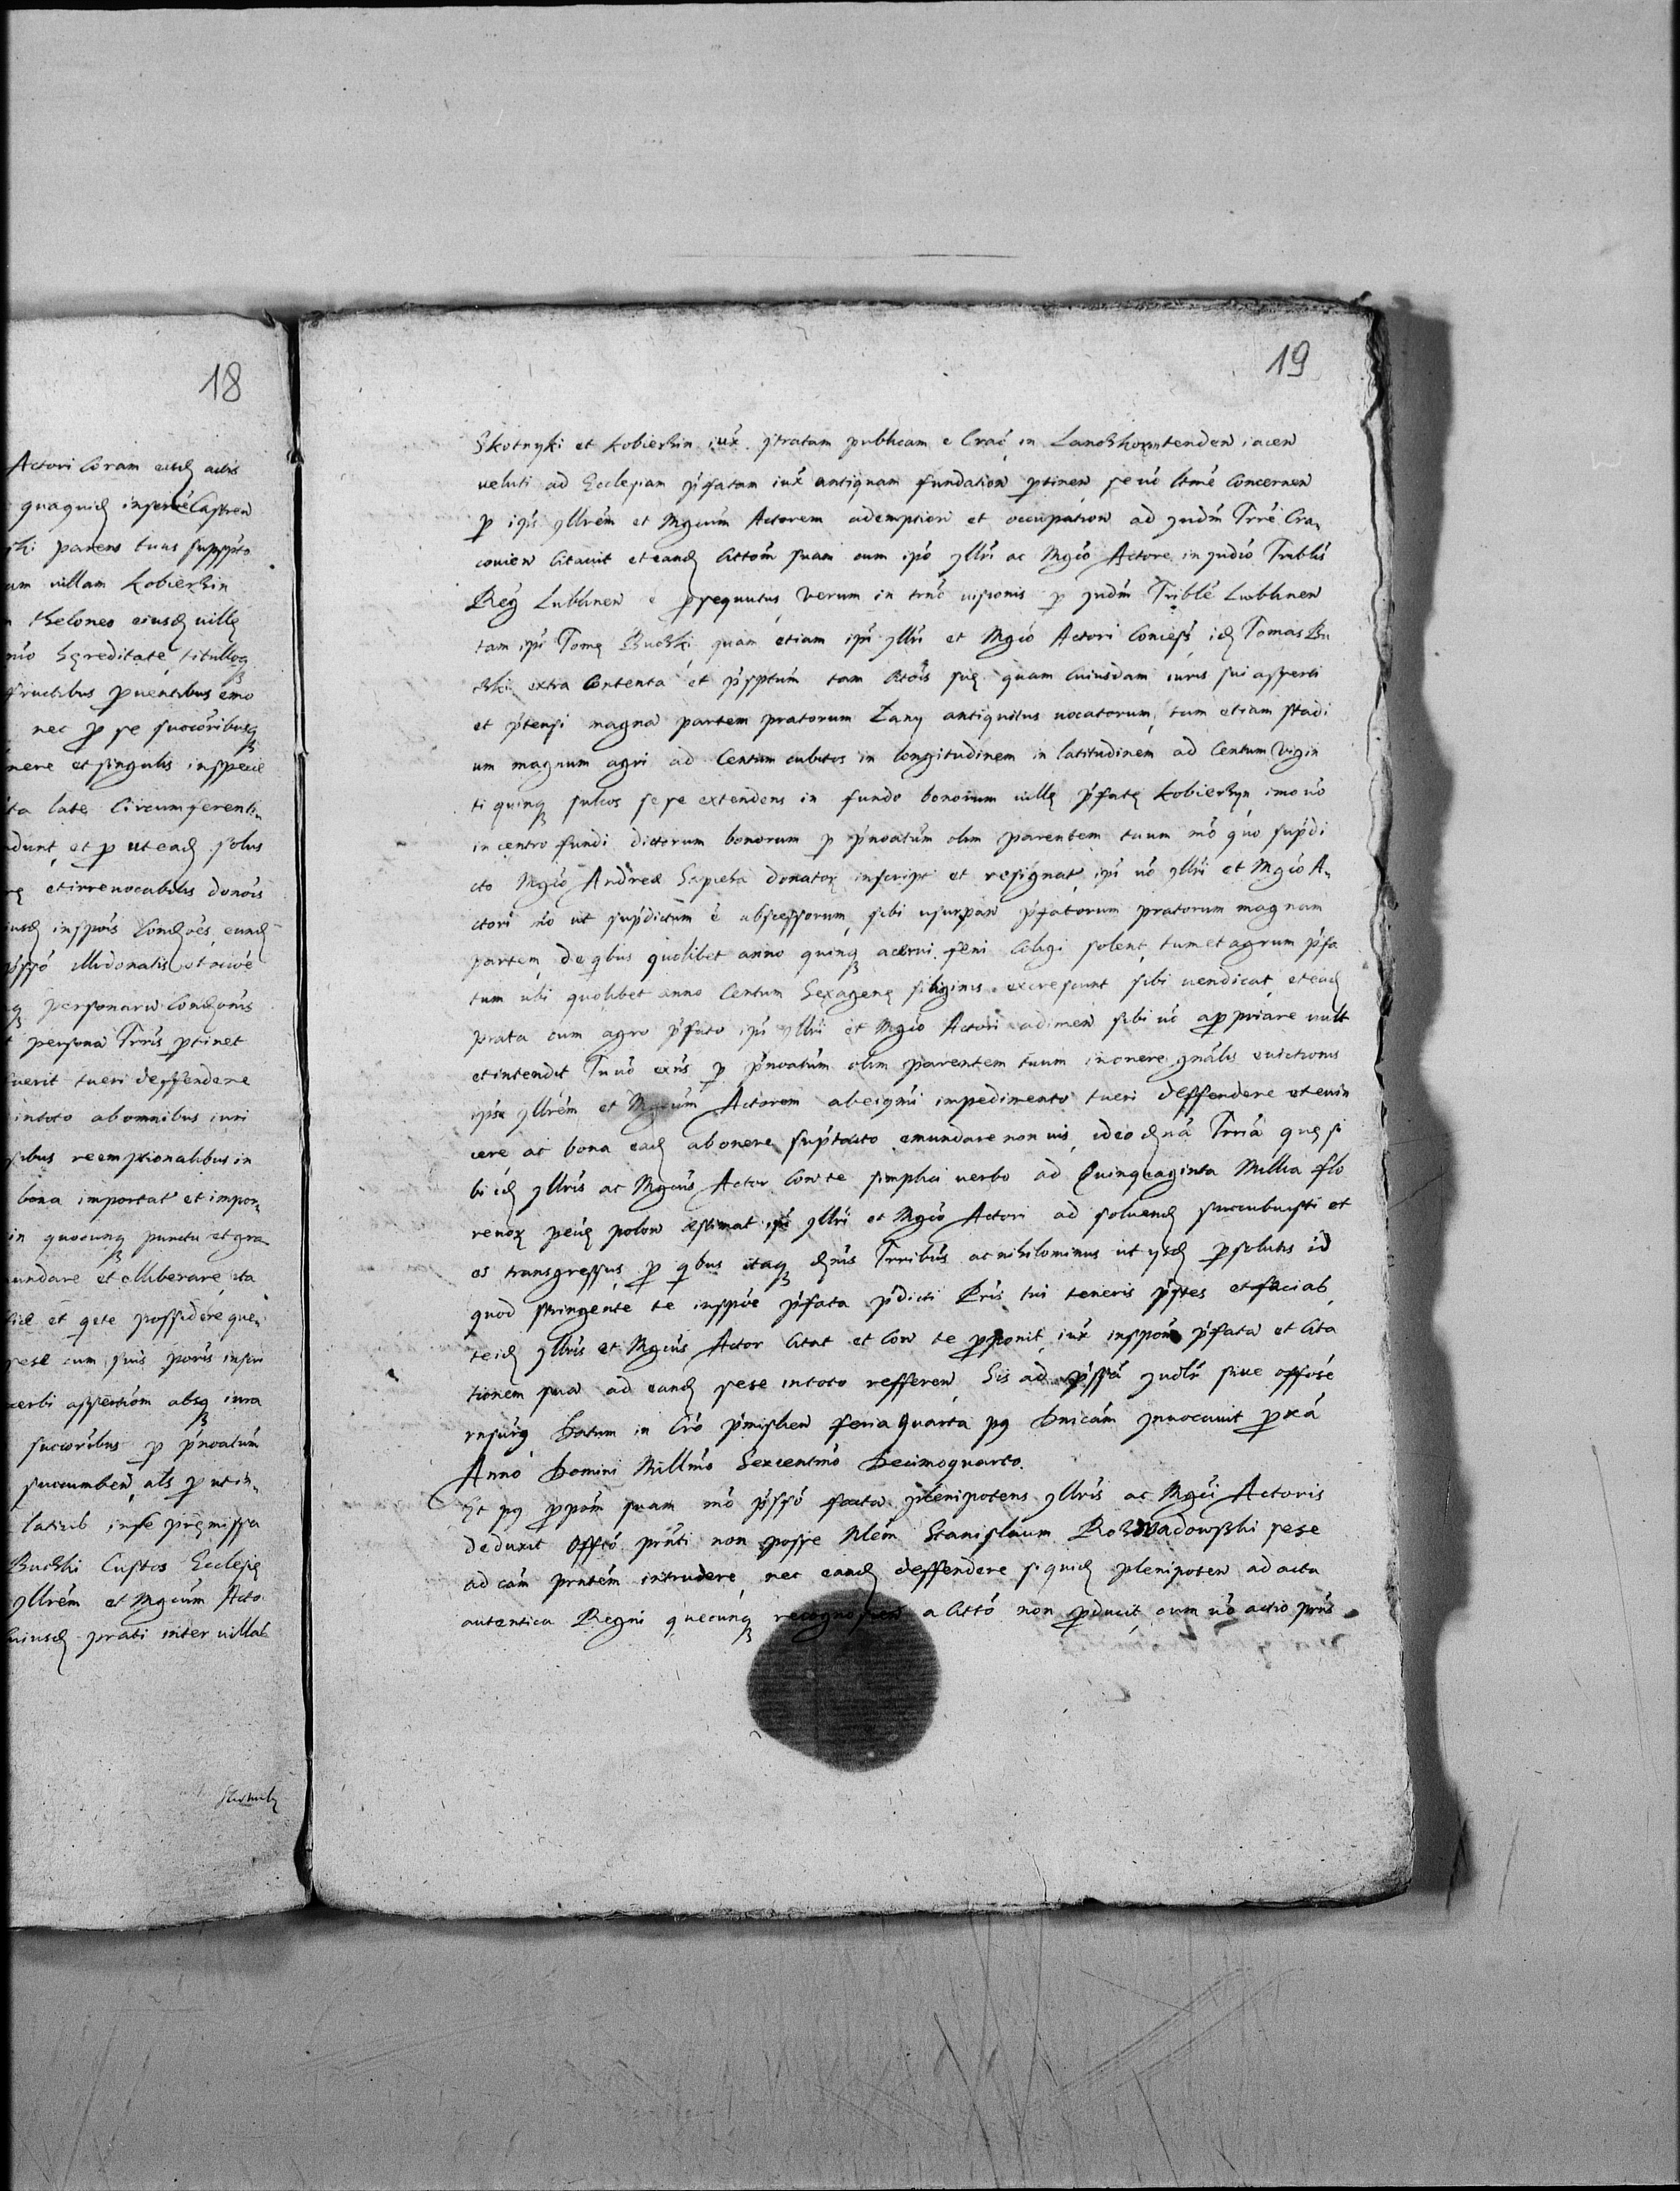 18
Actori Coram eisd actis
quaquid inscrõe Castren
ski parens tuus suppto
um villam Kobierzin
n theloneo eiusd villę
nio hęreditate, titulloq
fructibus puentibus emo
nec p se sucoribusq
nere et singulis in specie
ta late Circumferenti-
dunt, et p ut ead solus
rę et irrevocabilis donõis
iusd inspõis Condoẽs, eund
pssõ illi donatis
q personaru Condonis
t persona Trris ptinet
fuerit tueri deffendere
in toto ab omnibus iuri
sibus reemptionalibus in
bona importat et impor-
in quocunq puncto et gra
undare et elliberare, ita
ficè et qete possidere que-
sese cum suis poris inscri
verbi assertiom absq iura
sucoribus p pnoatum
succumben, als p ut in-
latius in se pręmissa
Buczki Custos Ecclesię
yllrem et Mgcum Acto
huiusd prati inter villas
19
Skotnyki et Kobierzin iux stratam publicam e Crac in Lanczkorn tenden iacen
veluti ad Ecclesiam pfatam iux antiquam fundation ptinen se vo ltme Concernen
p ipũ yllrem et Mgcum Actorem ademption et occupation ad Judm Trre Cra-
covien Citavit et eand Cittom suam cum ipo yllri ac Mgco Actore in Judio Triblis
Reg Lublinen e psequutus, Verum in trnc visionis p Judm Trible Lublinen
tam ipi Tomę Buczki quam etiam ipi yllri et Mgco Actori Concess, id Tomas Bu
czki extra Contenta et psptum tam Cittois suę quam Cuiusdam iuris sui asserti
et ptensi magna partem pratorum Lany antiquitus vocatorum, tum etiam stadi
um magnum agri ad Centum cubitos in longitudinem in latitudinem ad Centum Vigin
ti quinq sulcos sese extendens in fundo bonorum villę pfatę Kobierzyn, imo vo
in centro fundi dictorum bonorum p pnoatum olim parentem tuum mo quo supdi
cto Mgco Andreæ Sapieha donator inscript et resignat, ipi vo yllri et Mgco A-
ctori mo ut supdictum e abscessorum, sibi usurpan pfatorum pratorum magnam
partem, de qbus quolibet anno quinq acervi feni Coligi solent, tum et agrum pfa
tum ubi quolibet anno Centum Sexagenę siliginis excrescunt sibi vendicat, et ead
prata cum agro pfato ipi yllri et Mgco Actori adimen sibi vo appriare vult
et intendit Tu vo exns p pnoatum olim parentem tuum in onere gnalis evictionis
ipse yllrem et Mgcum Actorem ab eigmi impedimento tueri deffendere et evin
cere ac bona ead ab onere suptacto emundare non vis, ideo dna Trria quę si
bi id yllris ac Mgcus Actor Con te simplici verbo ad Quinquaginta Millia flo
renor peũę polon æstimat ipi yllri et Mgco Actori ad solvend succubuisti et
es transgressus, p qbus itaq dnis Trribus ac nihilominus ut ysd psolutis id
quod stringente te inspõe pfata pdicti Pris tui teneris pstes et facias,
te id yllris et Mgcus Actor Citat et Con te pponit, iux inspom pfata et Cita
tionem sua ad eand sese in toto refferen, Sis ad pssa Judtr sive offose
rnsurg Datum in Cro pmislien feria Quarta pq Dnicam Jnvocavit pxa
Anno Domini Millmo Sexcentmo Decimoquarto.
Et pq ppom suam mo pssõ facta plenipotens yllris ac Mgci Actoris
deduxit Offo pnti non posse Nlem Stanislaum Rozwadowski sese
ad cam pntem intrudere, nec eand deffendere siquid plenipoten ad acta
autentica Regni quecunq recognoscen a Citto non pducit, cum vo actio pris